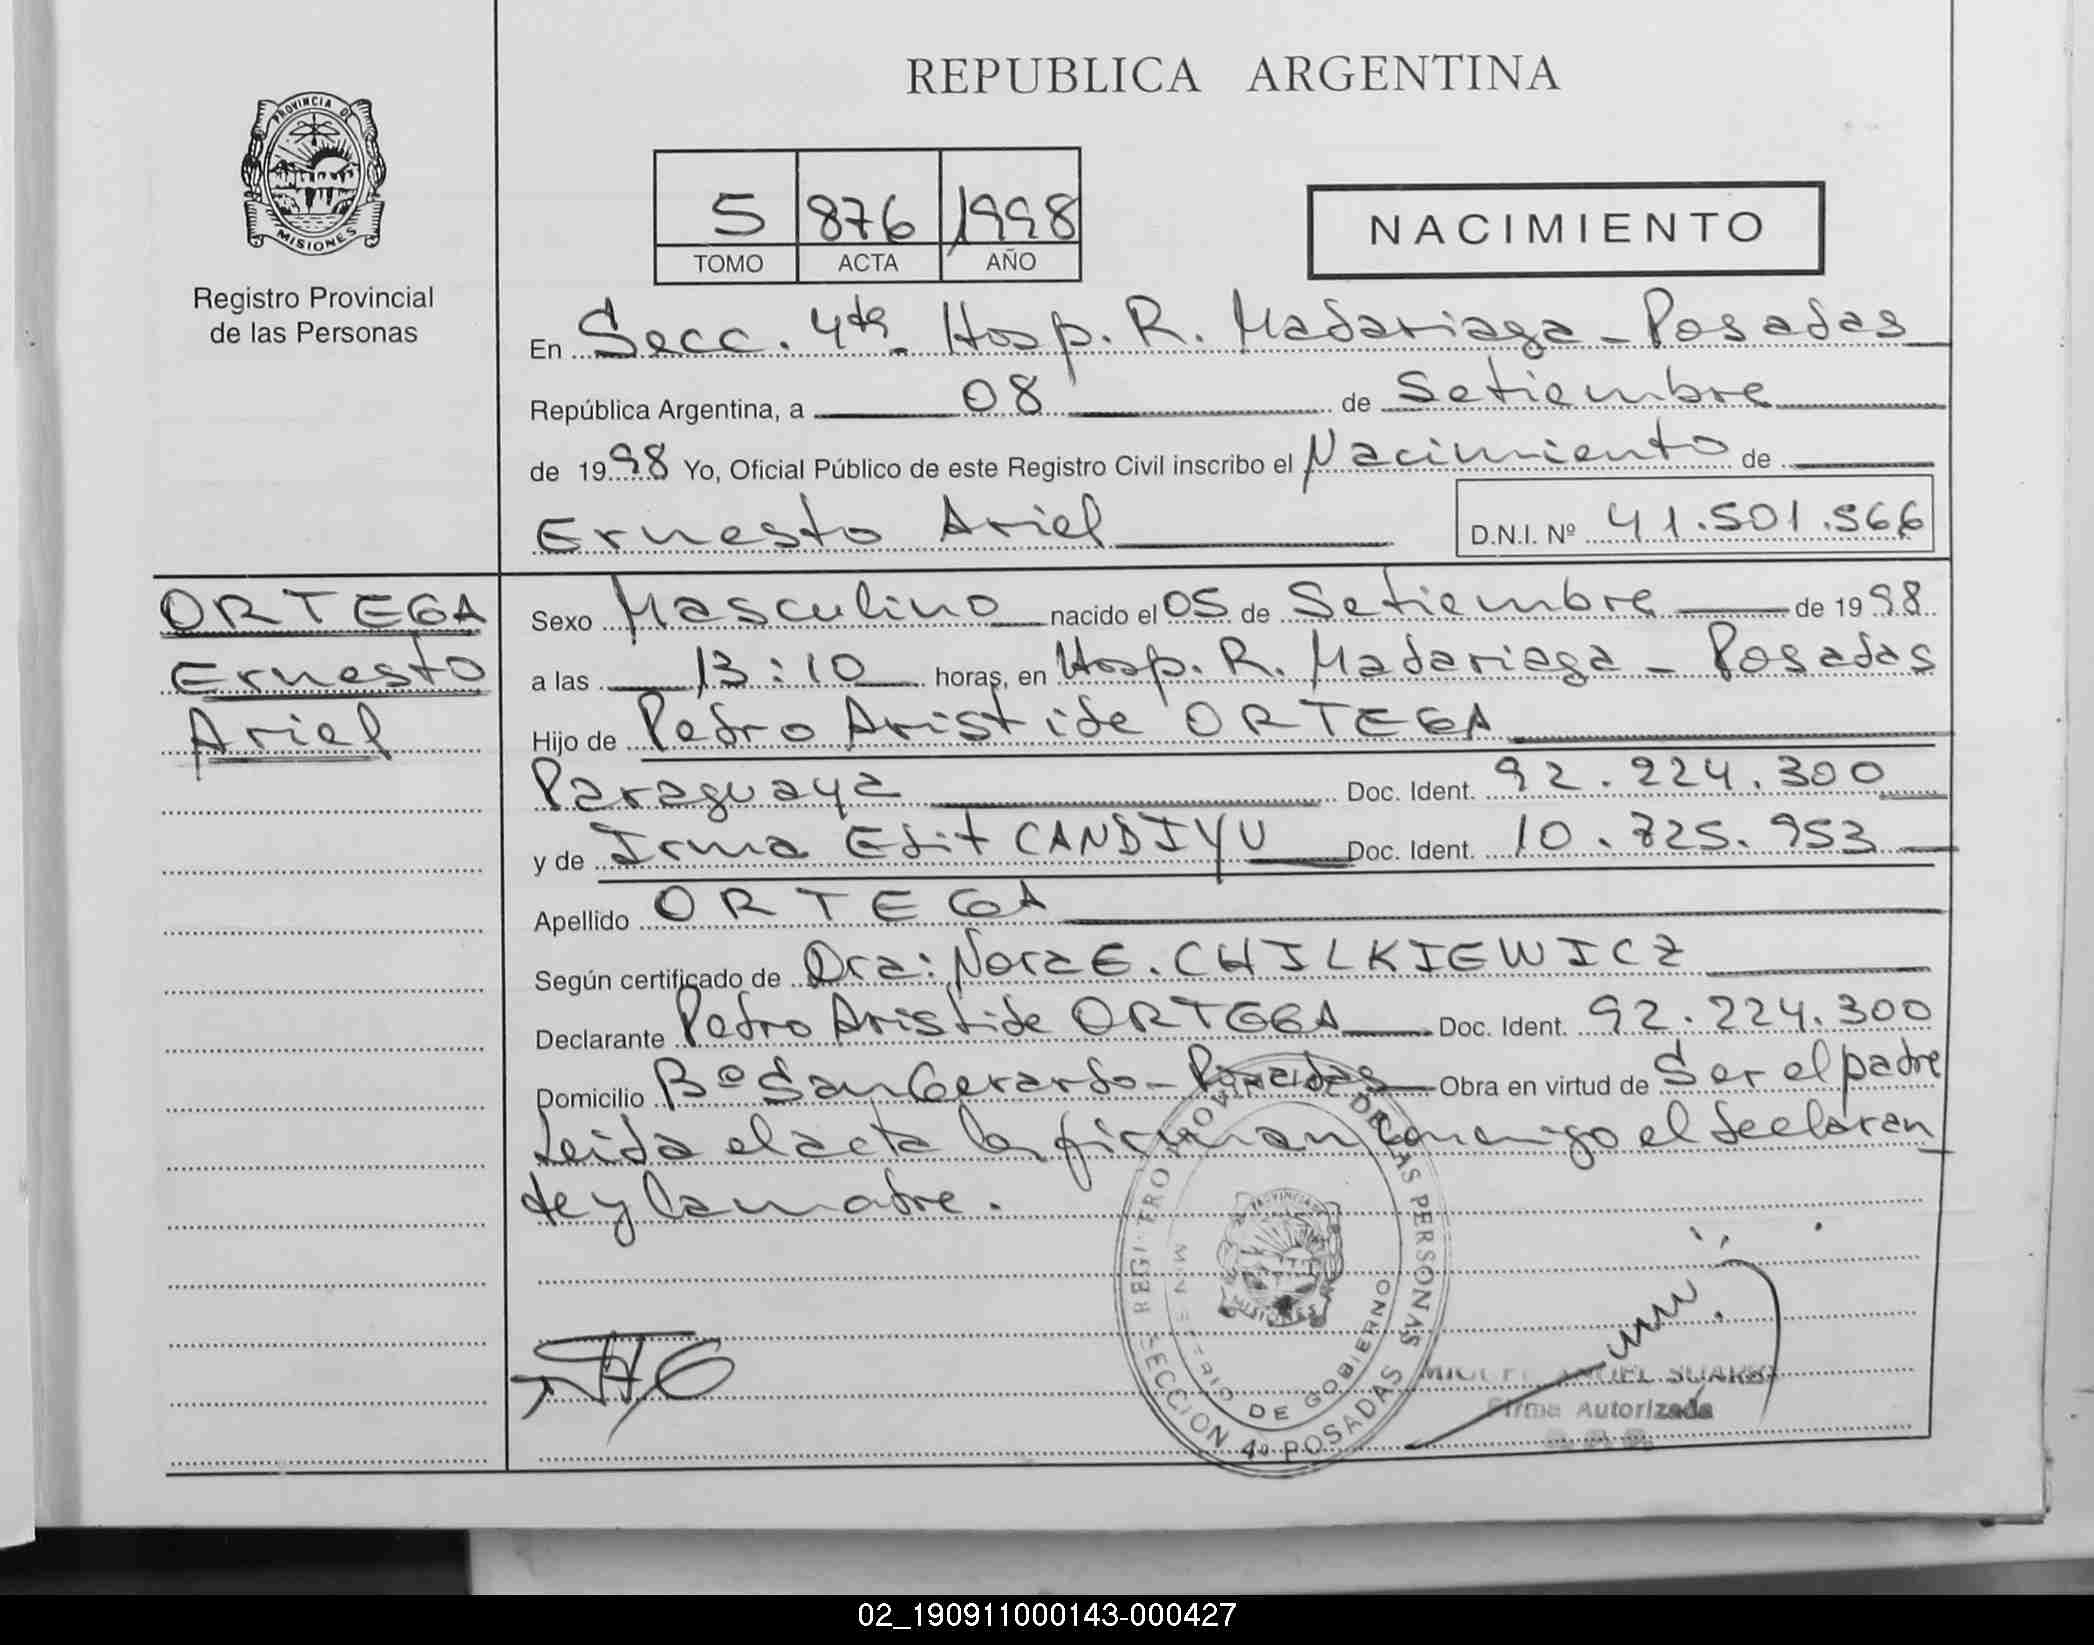 REPUBLICA ARGENTINA
PROVINCIA DE
MISIONES
Registro Provincial
de las Personas
5 876 1998
TOMO ACTA AÑO
NACIMIENTO
En Secc. 4ta Hosp. R. Madariaga - Posadas
República Argentina, a 08 de Setiembre
de 1998 Yo, Oficial Público de este Registro Civil inscribo el Nacimiento de
Ernesto Ariel D.N.I. Nº 41.501.566
ORTEGA
Ernesto
Ariel
Sexo Masculino nacido el 05 de Setiembre de 1998
a las 13:10 horas, en Hosp. R. Madariaga - Posadas
Hijo de Pedro Aristide ORTEGA
Paraguaya Doc. Ident. 92.224.300
y de Irma Edit CANDIYU Doc. Ident. 10.825.953
Apellido ORTEGA
Según certificado de Dra: Nora E. CHILKIEWICZ
Declarante Pedro Aristide ORTEGA Doc. Ident. 92.224.300
Domicilio Bº San Gerardo - Posadas Obra en virtud de Ser el padre
Leida el acta la firman conmigo el declaran
te y la madre.
REGISTRO PROVINCIAL DE LAS PERSONAS
MINISTERIO DE GOBIERNO
SECCION 4º POSADAS
PROVINCIA
MISIONES
MIGUEL ANGEL SUAREZ
Firma Autorizada
02_190911000143-000427